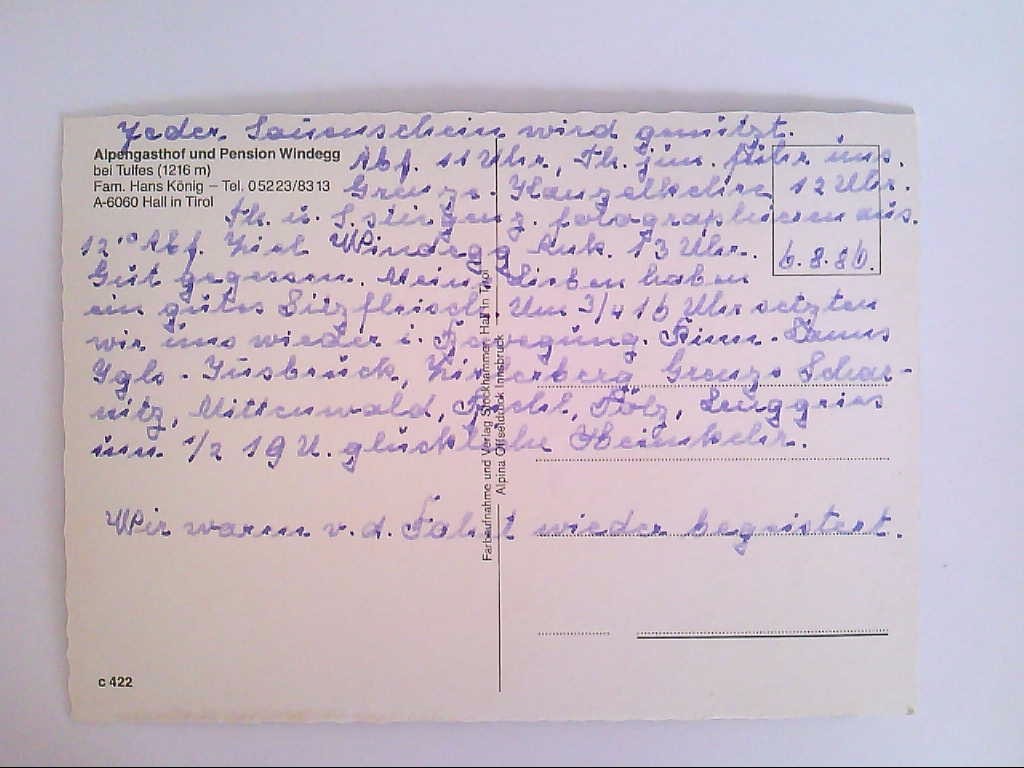 Jeder Sonnenschein wird genützt.
Alpengasthof und Pension Windegg
bei Tulfes (1216 m)
Fam. Hans König – Tel. 05223/8313
A-6060 Hall in Tirol
Abf. 11 Uhr, Th. jun. führ uns.
Grenze 12 Uhr.
Th. u. fotographieren aus.
12 Abf. Ziel Windegg Ank. 13 Uhr.
6.8.86.
Gut gegessen. Meine Lieben haben
ein gutes Sitzfleisch. Um 3/4 16 Uhr setzten
wir uns wieder i. Bewegung.
Igls - Insbruck, Zirlerberg Grenze Schar-
nitz, Mittenwald, Tölz, Lenggries
um 1/2 19 U. glückliche Heimkehr.
Wir waren v. d. Fahrt wieder begeistert.
Farbaufnahme und Verlag Stockhammer, Hall in Tirol
Alpina Offsetdruck Innsbruck
c 422